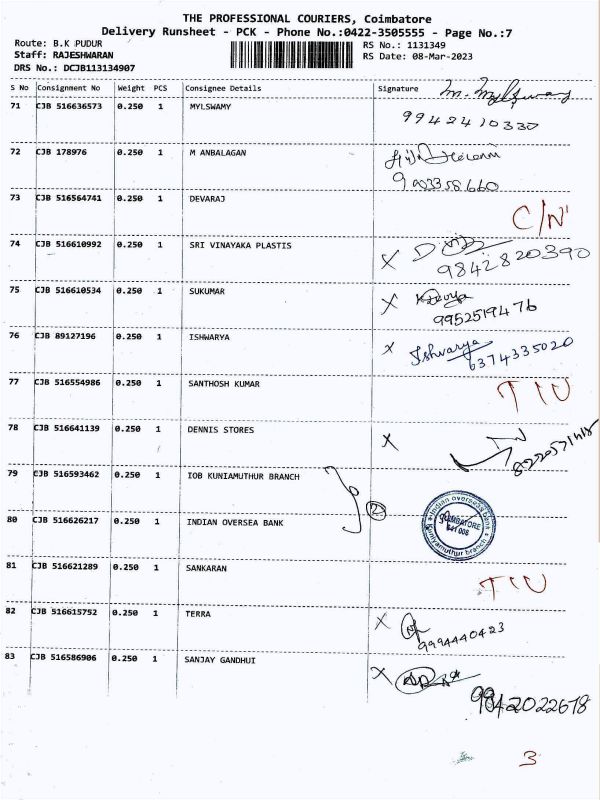 THE PROFESSIONAL COURIERS, Coimbatore
Delivery Runsheet - PCK - Phone No.:0422-3505555 - Page No.:7
Route: B.K PUDUR RS No.: 1131349
Staff: RAJESHWARAN RS Date: 08-Mar-2023
DRS No.: DCJB113134907
S No Consignment No Weight PCS Consignee Details Signature
71 CJB 516636573 0.250 1 MYLSWAMY M. Mylswamy
9942410330
72 CJB 178976 0.250 1 M ANBALAGAN
73 CJB 516564741 0.250 1 DEVARAJ
C/N
74 CJB 516610992 0.250 1 SRI VINAYAKA PLASTIS X
9842820390
75 CJB 516610534 0.250 1 SUKUMAR X
9952519476
76 CJB 89127196 0.250 1 ISHWARYA X Ishwarya
6374335020
77 CJB 516554986 0.250 1 SANTHOSH KUMAR
78 CJB 516641139 0.250 1 DENNIS STORES X
79 CJB 516593462 0.250 1 IOB KUNIAMUTHUR BRANCH
Indian overseas bank
COIMBATORE
641 008
Kuniyamuthur branch
80 CJB 516626217 0.250 1 INDIAN OVERSEA BANK
81 CJB 516621289 0.250 1 SANKARAN
82 CJB 516615752 0.250 1 TERRA X
9994440423
83 CJB 516586906 0.250 1 SANJAY GANDHUI X
9842022678
3